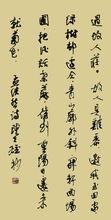 過故人莊 故人具雞黍 邀我至田家
綠樹村邊合 青山郭外斜 開軒面場
圃 把酒話桑麻 待到重陽日 還來
就菊花 孟浩然詩